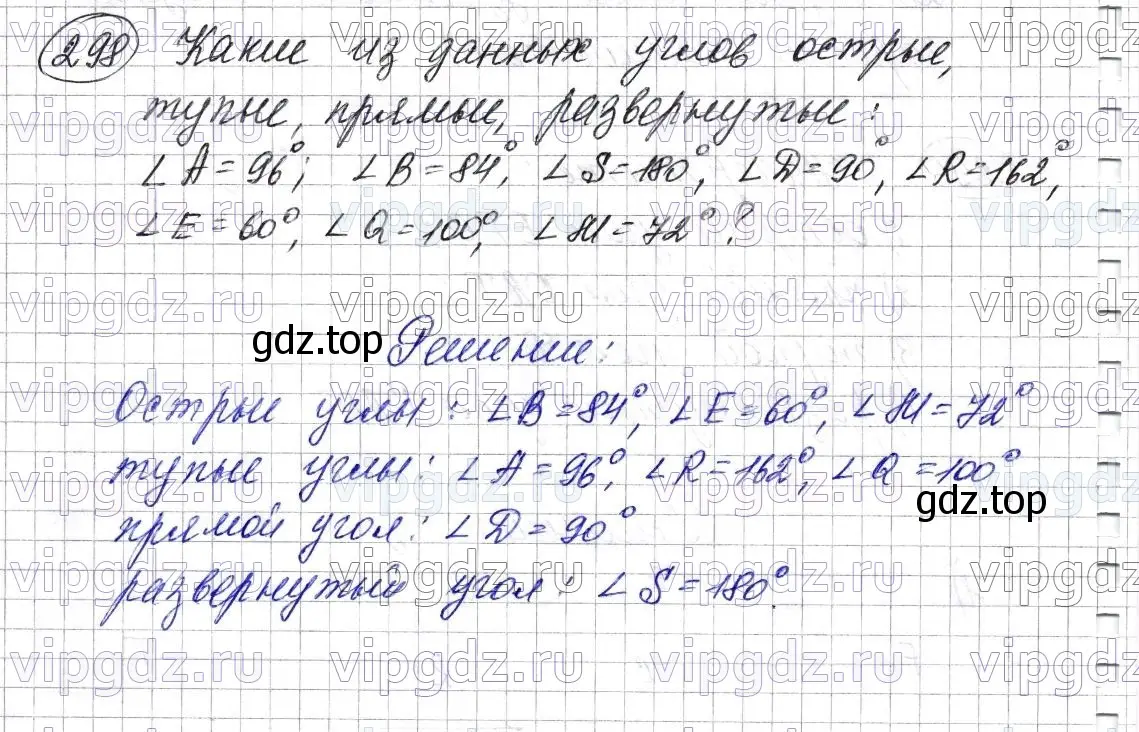 298 Какие из данных углов острые,
тупые, прямые, развернутые:
∠A = 96°; ∠B = 84°, ∠S = 180°, ∠D = 90°, ∠R = 162°,
∠E = 60°, ∠Q = 100°, ∠M = 72°?
gdz.top Решение:
Острые углы: ∠B = 84°, ∠E = 60°, ∠M = 72°
тупые углы: ∠A = 96°, ∠R = 162°, ∠Q = 100°
gdz.top
прямой угол: ∠D = 90°
развернутый угол: ∠S = 180°
vipgdz.ru